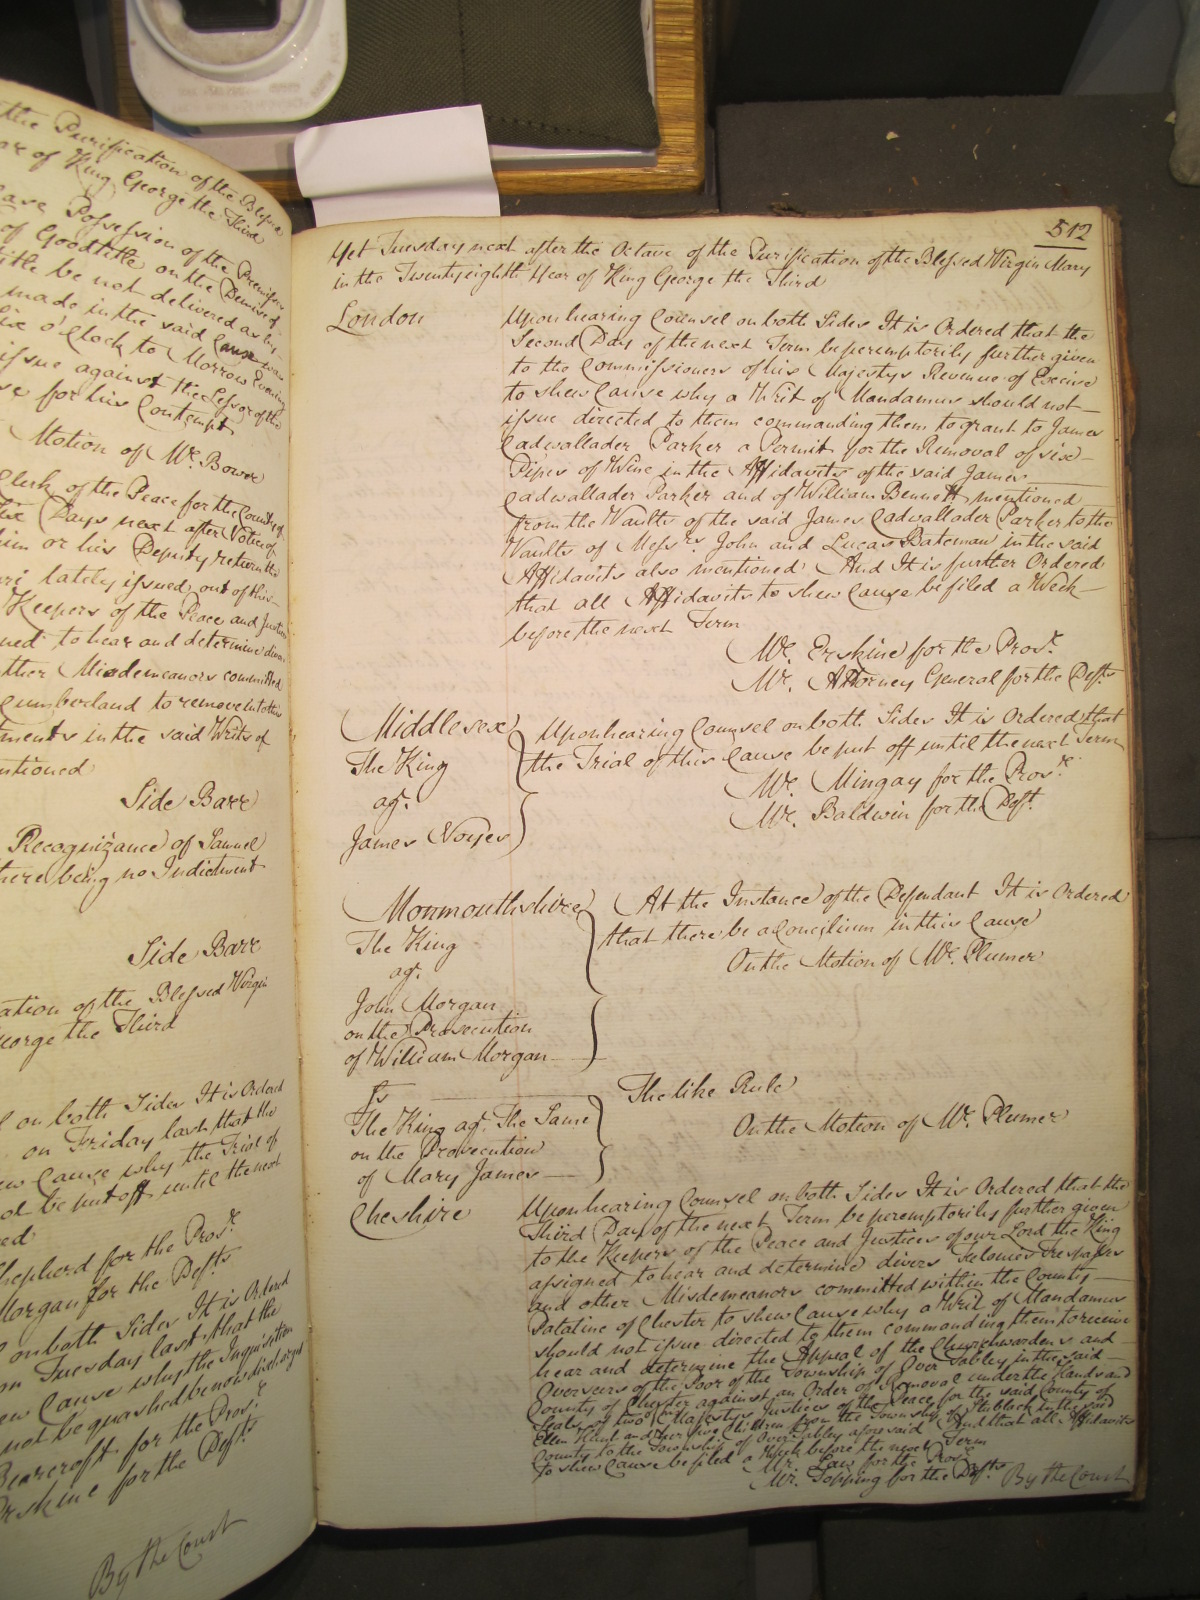 the Purification of the Blessed
of King George the Third
Possession of the Premises
of Goodtitle on the Demise of
title be not delivered as by
made in the said Cause was
six o'Clock to Morrow Evening
issue against the Lessor of the
for his Contempt
Motion of Mr. Bower
Clerk of the Peace for the County of
Six Days next after Notice of
him or his Deputy return the
lately issued out of this
Keepers of the Peace and Justices
to hear and determine divers
other Misdemeanors committed
Cumberland to remove into this
in the said Writs of
mentioned
Side Barr
Recognizance of Samuel
there being no Indictment
Side Barr
of the Blessed Virgin
George the Third
on both Sides It is Ordered
on Friday last that the
Cause why the Trial of
be put off until the next
Shepherd for the Prosr.
Morgan for the Defts
on both Sides It is Ordered
on Tuesday last that the
Cause why the Inquisition
not be quashed be now discharged
Bearcroft for the Prosr.
Erskine for the Defts.
By the Court
512
Yet Tuesday next after the Octave of the Purification of the Blessed Virgin Mary
in the Twentyeighth Year of King George the Third
London
Upon hearing Counsel on both Sides It is Ordered that the
Second Day of the next Term be peremptorily further given
to the Commissioners of his Majestys Revenue of Excise
to shew Cause why a Writ of Mandamus should not
issue directed to them commanding them to grant to James
Cadwallader Parker a Permit for the Removal of six
Pipes of Wine in the Affidavits of the said James
Cadwallader Parker and of William Bennett mentioned
from the Vaults of the said James Cadwallader Parker to the
Vaults of Messrs. John and Lucas Bateman in the said
Affidavits also mentioned And It is further Ordered
that all Affidavits to shew Cause be filed a Week
before the next Term
Mr. Erskine for the Prosr.
Mr. Attorney General for the Defts
Middlesex
The King
agt.
James Noyes
Upon hearing Counsel on both Sides It is Ordered that
the Trial of this Cause be put off until the next Term
Mr. Mingay for the Prosr.
Mr. Baldwin for the Deft.
Monmouthshire
The King
agt.
John Morgan
on the Prosecution
of William Morgan
At the Instance of the Defendant It is Ordered
that there be a Concilium in this Cause
On the Motion of Mr. Plumer
Ss
The King agt. The Same
on the Prosecution
of Mary James
The like Rule
On the Motion of Mr. Plumer
Cheshire
Upon hearing Counsel on both Sides It is Ordered that the
Third Day of the next Term be peremptorily further given
to the Keepers of the Peace and Justices of our Lord the King
assigned to hear and determine divers Felonies Trespasses
and other Misdemeanors committed within the County
Palatine of Chester to shew Cause why a Writ of Mandamus
should not issue directed to them commanding them to receive
hear and determine the Appeal of the Churchwardens and
Overseers of the Poor of the Township of Over Tabley in the said
County of Chester against an Order of Removal under the Hands and
Seals of two Majestys Justices of the Peace for the said County of
Ellen and her five Children from the Township of in the said
County to the Township of Over Tabley aforesaid And that all Affidavits
to shew Cause be filed a Week before the next Term
Mr. Law for the Prosr.
Mr. Topping for the Defts.
By the Court